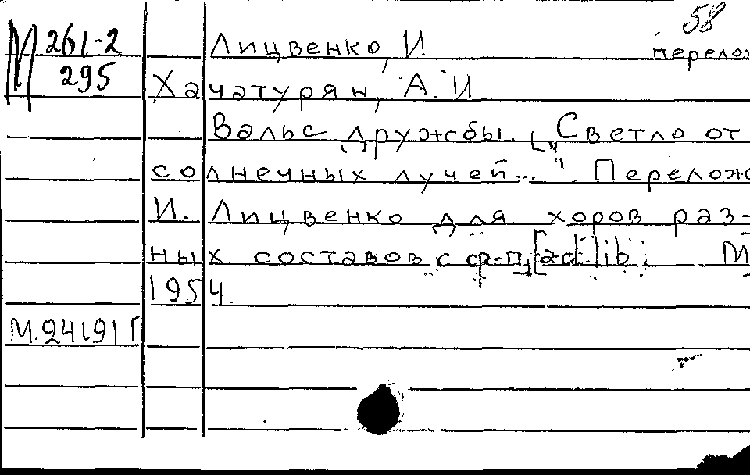 58
М 261-2
295
Лицвенко, И.
перелож
Хачатурян, А. И
Вальс дружбы. ["Светло от
солнечных лучей..." Перелож
И. Лицвенко для хоров раз-
ных составов с ф-п, [ad lib. М
1954
М.24191 Г